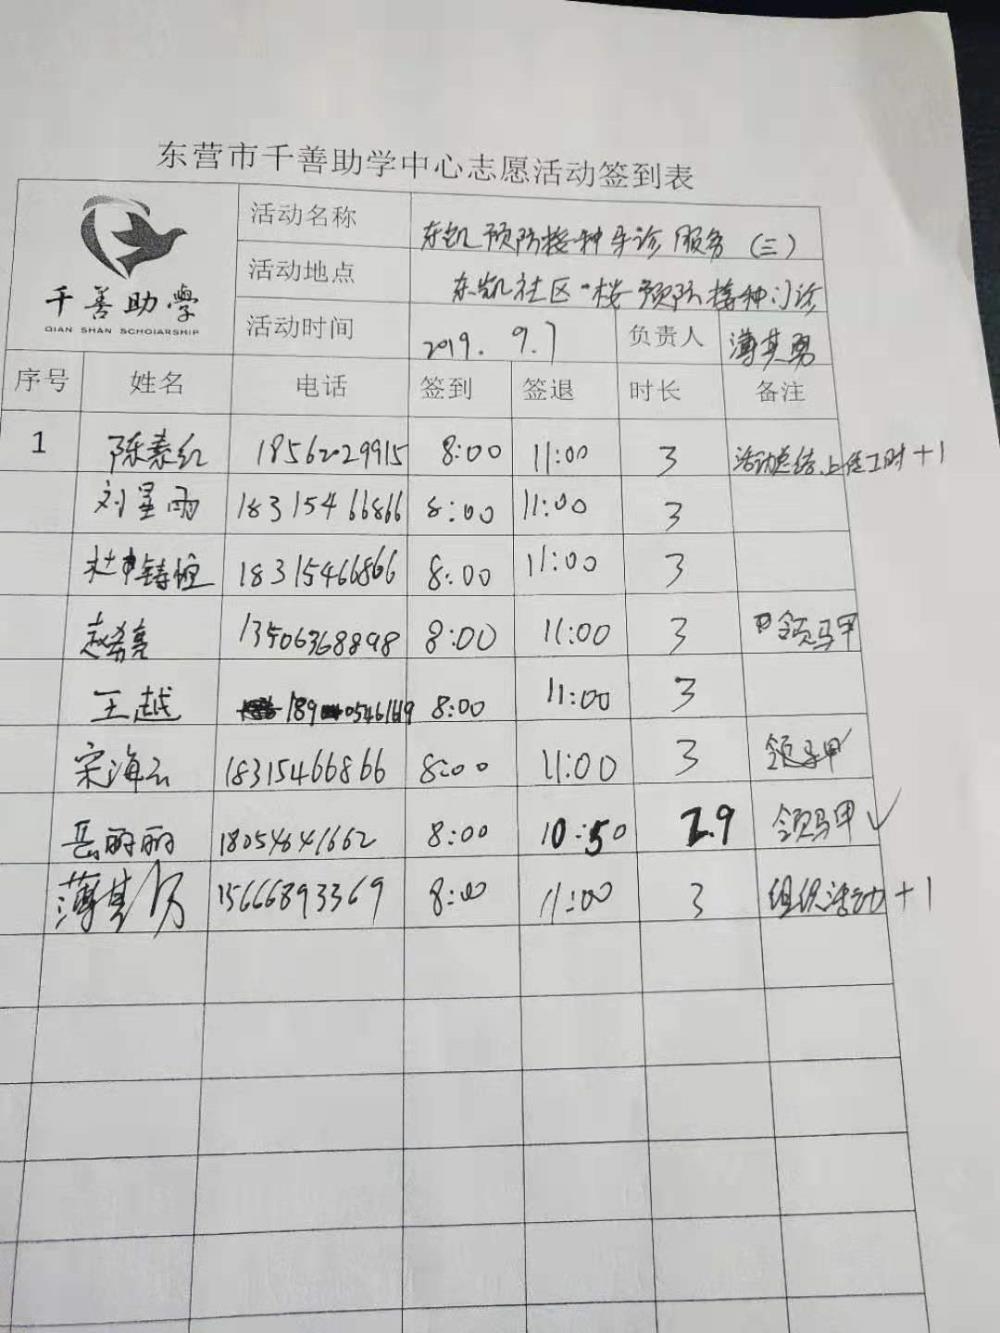 东营市千善助学中心志愿活动签到表
千善助學
QIAN SHAN SCHOlARSHIP
活动名称 东凯预防接种门诊服务（三）
活动地点 东凯社区一楼预防接种门诊
活动时间 2019. 9.7 负责人 薄其勇
序号 姓名 电话 签到 签退 时长 备注
1 陈素红 18562029915 8:00 11:00 3 活动总结上传工时+1
刘星雨 18315466866 8:00 11:00 3
杜铸恒 18315466866 8:00 11:00 3
赵希亮 13506368898 8:00 11:00 3 领马甲
王越 189 8:00 11:00 3
宋海云 18315466866 8:00 11:00 3 领马甲
岳丽丽 18054641662 8:00 10:50 2.9 领马甲 ✓
薄其勇 15666893369 8:00 11:00 3 组织活动+1